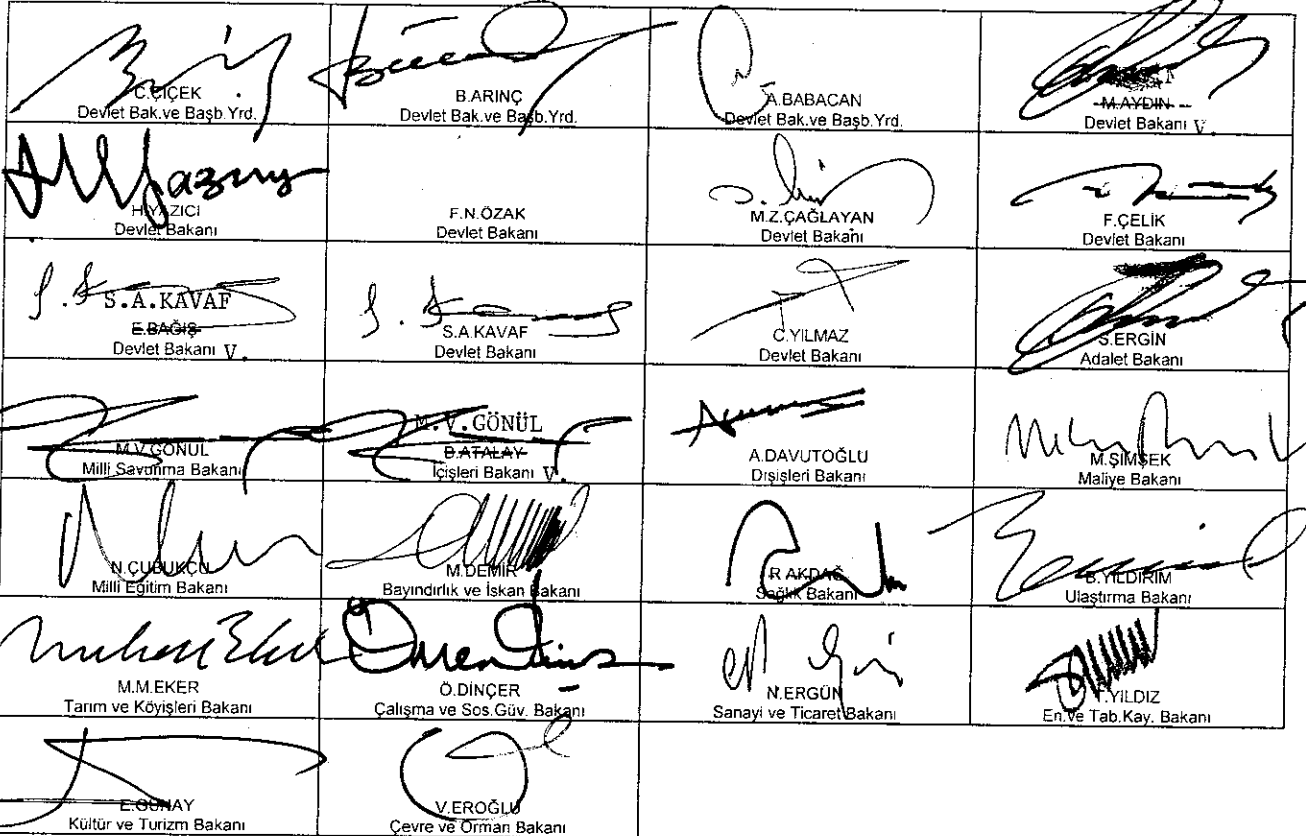 C.ÇİÇEK
Devlet Bak.ve Başb.Yrd.
B.ARINÇ
Devlet Bak.ve Başb.Yrd.
A.BABACAN
Devlet Bak.ve Başb.Yrd.
M.AYDIN
Devlet Bakanı V.
H.YAZICI
Devlet Bakanı
F.N.ÖZAK
Devlet Bakanı
M.Z.ÇAĞLAYAN
Devlet Bakanı
F.ÇELİK
Devlet Bakanı
S.A.KAVAF
E.BAĞIŞ
Devlet Bakanı V.
S.A.KAVAF
Devlet Bakanı
C.YILMAZ
Devlet Bakanı
S.ERGİN
Adalet Bakanı
M.V.GÖNÜL
Milli Savunma Bakanı
M.V.GÖNÜL
B.ATALAY
İçişleri Bakanı V.
A.DAVUTOĞLU
Dışişleri Bakanı
M.ŞİMŞEK
Maliye Bakanı
N.ÇUBUKÇU
Milli Eğitim Bakanı
M.DEMİR
Bayındırlık ve İskan Bakanı
R.AKDAĞ
Sağlık Bakanı
B.YILDIRIM
Ulaştırma Bakanı
M.M.EKER
Tarım ve Köyişleri Bakanı
Ö.DİNÇER
Çalışma ve Sos.Güv. Bakanı
N.ERGÜN
Sanayi ve Ticaret Bakanı
T.YILDIZ
En.ve Tab.Kay. Bakanı
E.GÜNAY
Kültür ve Turizm Bakanı
V.EROĞLU
Çevre ve Orman Bakanı